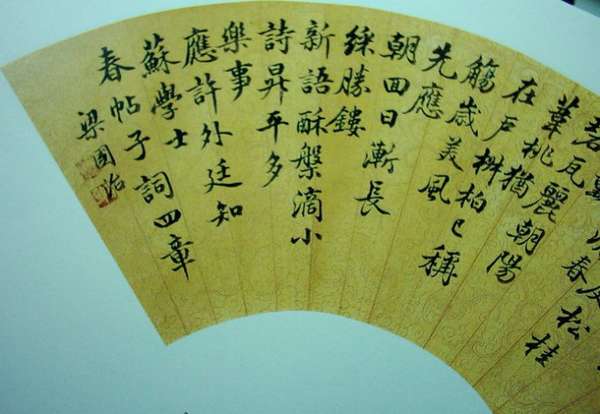 春松桂
碧瓦麗朝陽
葦桃猶
在戶椒柏已稱
觴歲美風
先應
朝回日漸長
綵勝鏤
新語酥槃滴小
詩昇平多
樂事
應許外廷知
蘇學士
春帖子詞四章
梁國治